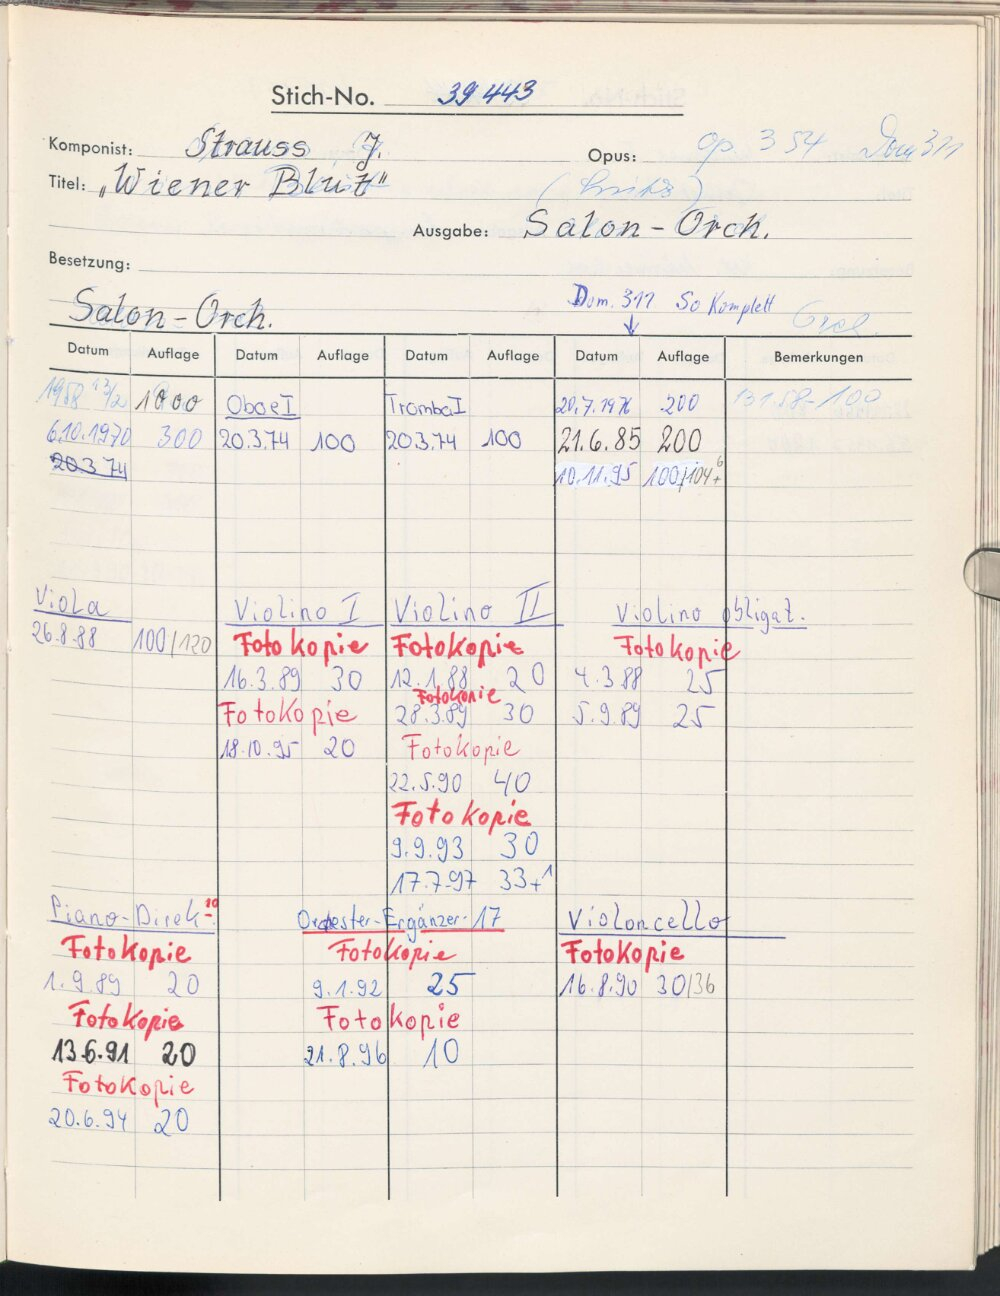 Stich-No. 39 443
Komponist: Strauss J. Opus: op. 354 Dom 311
Titel: „Wiener Blut"
Ausgabe: Salon - Orch.
Besetzung:
Salon - Orch.
Dom. 311 So Komplett
Datum Auflage Datum Auflage Datum Auflage Datum Auflage Bemerkungen
1958 1000 Oboe I Tromba I 20.7.1976 200 131.58-100
6.10.1970 300 20.3.74 100 20.3.74 100 21.6.85 200
20.3.74 10.11.95 100/104+6
Viola Violino I Violino II Violino obligat.
26.8.88 100/120 Fotokopie Fotokopie Fotokopie
16.3.89 30 12.1.88 20 4.3.88 25
Fotokopie
Fotokopie 28.3.89 30 5.9.89 25
18.10.95 20 Fotokopie
22.5.90 40
Fotokopie
9.9.93 30
17.7.97 33+1
Piano-Direk-. Orchester-Ergänzer-17 Violoncello
Fotokopie Fotokopie Fotokopie
1.9.89 20 9.1.92 25 16.8.90 30/36
Fotokopie Fotokopie
13.6.91 20 21.8.96 10
Fotokopie
20.6.94 20